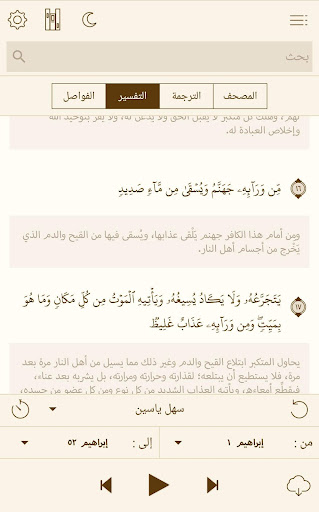 بحث
المصحف
الترجمة
التفسير
الفواصل
لهم، وهلك كل متكبر لا يقبل الحق ولا يُذعن له، ولا يقر بتوحيد الله
وإخلاص العبادة له.
مِّن وَرَآئِهِۦ جَهَنَّمُ وَيُسْقَىٰ مِن مَّآءٍ صَدِيدٍ ١٦
ومِن أمام هذا الكافر جهنم يَلْقى عذابها، ويُسقى فيها من القيح والدم الذي
يَخْرج من أجسام أهل النار.
يَتَجَرَّعُهُۥ وَلَا يَكَادُ يُسِيغُهُۥ وَيَأْتِيهِ ٱلْمَوْتُ مِن كُلِّ مَكَانٍ وَمَا هُوَ ١٧
بِمَيِّتٍ ۖ وَمِن وَرَآئِهِۦ عَذَابٌ غَلِيظٌ
يحاول المتكبر ابتلاع القيح والدم وغير ذلك مما يسيل من أهل النار مرة بعد
مرة، فلا يستطيع أن يبتلعه؛ لقذارته وحرارته ومرارته، بل يشربه بعد عناء،
فيقطِّع أمعاءه، ويأتيه العذاب الشديد من كل نوع ومن كل عضو من جسده،
سهل ياسين
من: إبراهيم ١
إلى: إبراهيم ٥٢